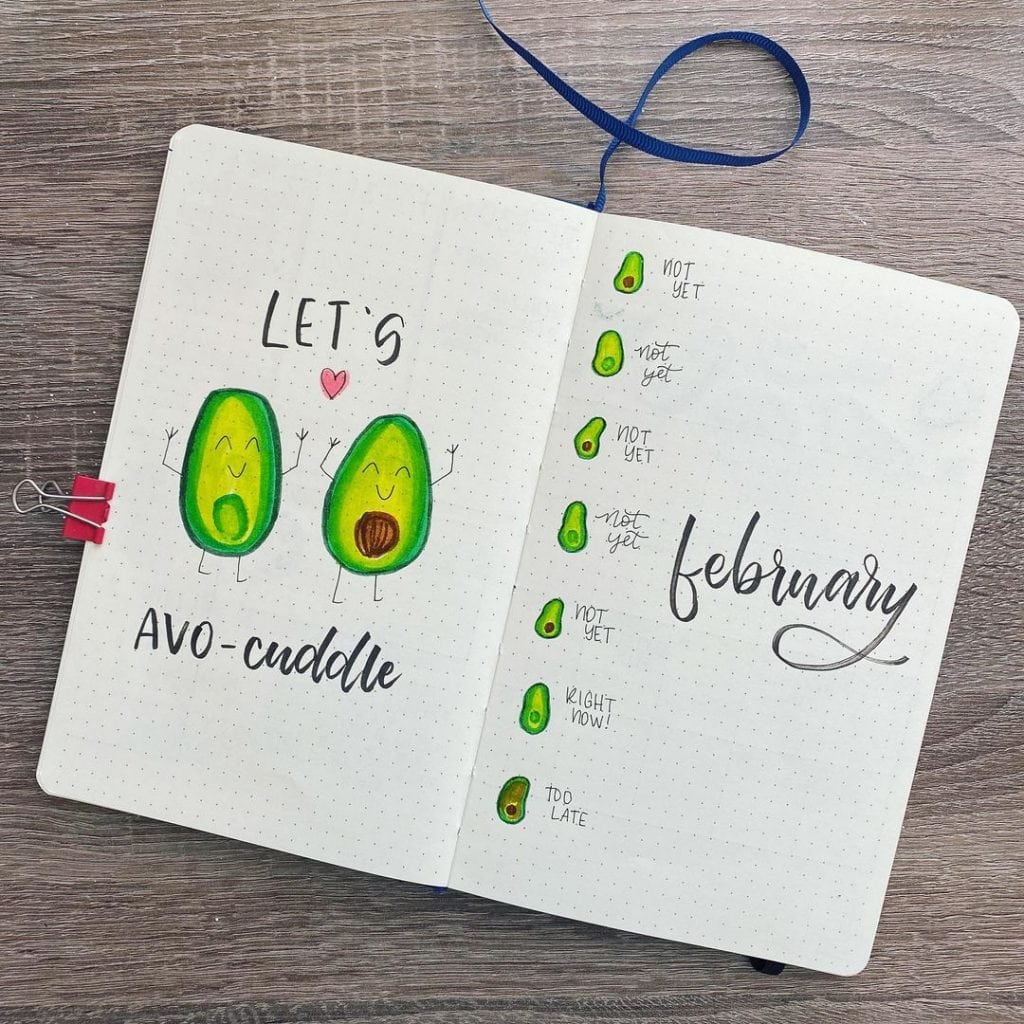 LET'S
AVO-cuddle
NOT
YET
not
yet
NOT
YET
not
yet
NOT
YET
RIGHT
NOW!
TOO
LATE
february